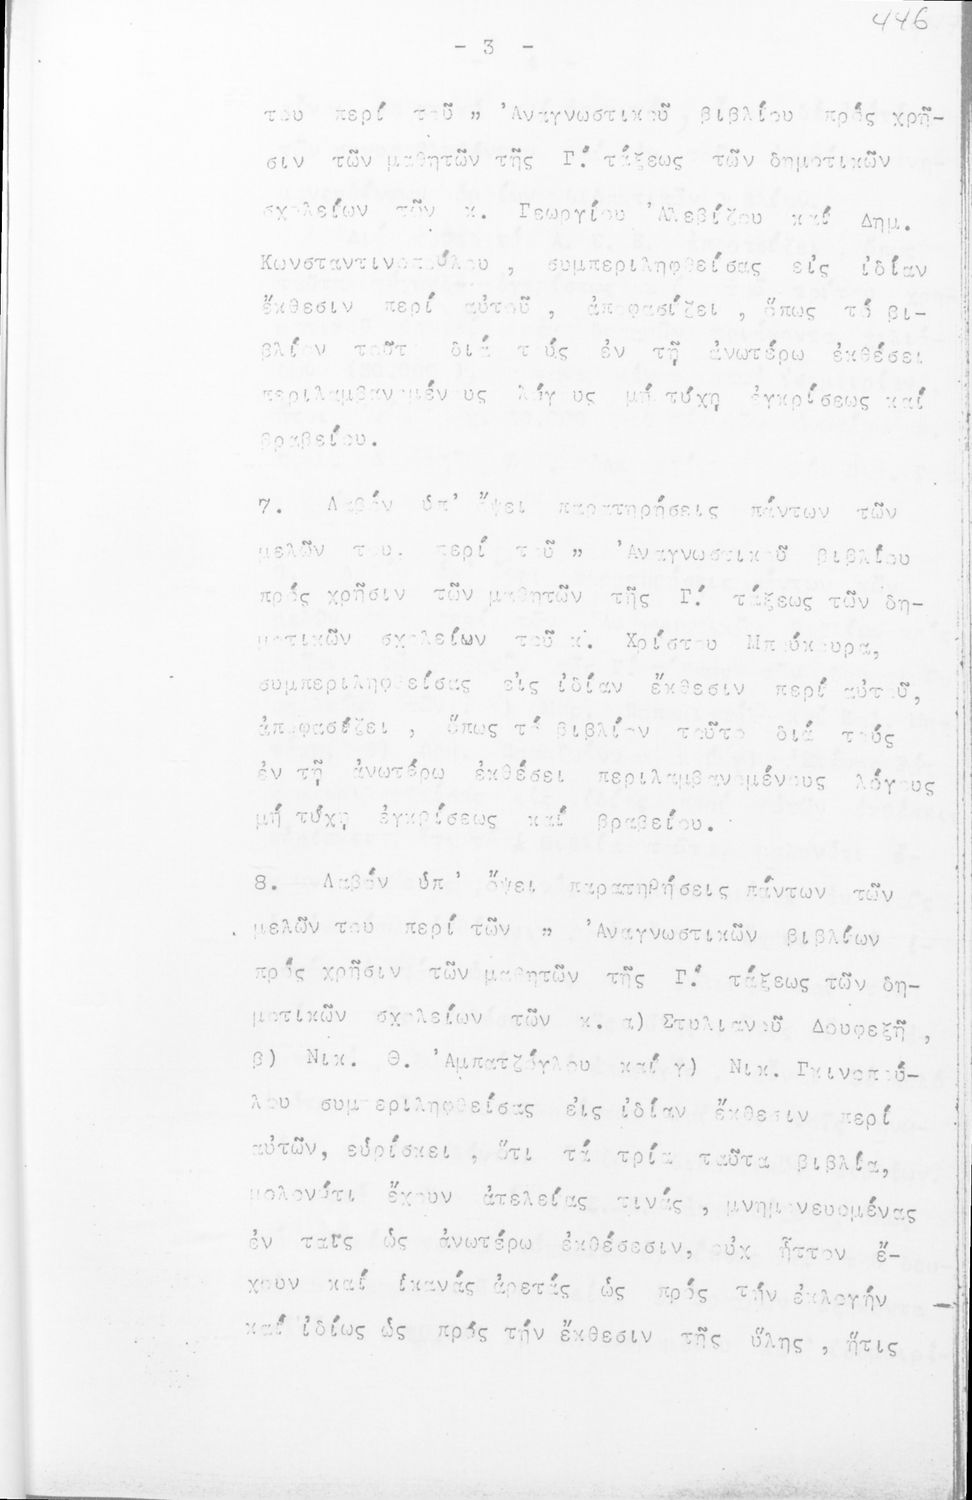 446
- 3 -
του περί τοῦ „ Ἀναγνωστικοῦ βιβλίου πρός χρῆ-
σιν τῶν μαθητῶν τῆς Γ΄. τάξεως τῶν δημοτικῶν
σχολείων τῶν κ. Γεωργίου Ἀλεβίζου καί Δημ.
Κωνσταντινοπούλου , συμπεριληφθείσας εἰς ἰδίαν
ἔκθεσιν περί αὐτοῦ , ἀποφασίζει , ὅπως τό βι-
βλίον τοῦτο διά τούς ἐν τῇ ἀνωτέρω ἐκθέσει
περιλαμβανομένους λόγους μή τύχῃ ἐγκρίσεως καί
βραβείου.
7. Λαβόν ὑπ' ὄψει παρατηρήσεις πάντων τῶν
μελῶν του. περί τοῦ „ Ἀναγνωστικοῦ βιβλίου
πρός χρῆσιν τῶν μαθητῶν τῆς Γ΄. τάξεως τῶν δη-
μοτικῶν σχολείων τοῦ κ. Χρίστου Μπούκουρα,
συμπεριληφθείσας εἰς ἰδίαν ἔκθεσιν περί αὐτοῦ,
ἀποφασίζει , ὅπως τό βιβλίον τοῦτο διά τούς
ἐν τῇ ἀνωτέρω ἐκθέσει περιλαμβανομένους λόγους
μή τύχῃ ἐγκρίσεως καί βραβείου.
8. Λαβόν ὑπ' ὄψει παρατηρήσεις πάντων τῶν
μελῶν του περί τῶν „ Ἀναγνωστικῶν βιβλίων
πρός χρῆσιν τῶν μαθητῶν τῆς Γ΄. τάξεως τῶν δη-
μοτικῶν σχολείων τῶν κ. α) Στυλιανοῦ Δουφεξῆ ,
β) Νικ. Θ. Ἀμπατζόγλου καί γ) Νικ. Γκινοπού-
λου συμπεριληφθείσας εἰς ἰδίαν ἔκθεσιν περί
αὐτῶν, εὑρίσκει , ὅτι τά τρία ταῦτα βιβλία,
μολονότι ἔχουν ἀτελείας τινάς , μνημονευομένας
ἐν ταῖς ὡς ἀνωτέρω ἐκθέσεσιν, οὐχ ἧττον ἔ-
χουν καί ἱκανάς ἀρετάς ὡς πρός τήν ἐκλογήν
καί ἰδίως ὡς πρός τήν ἔκθεσιν τῆς ὕλης , ἥτις